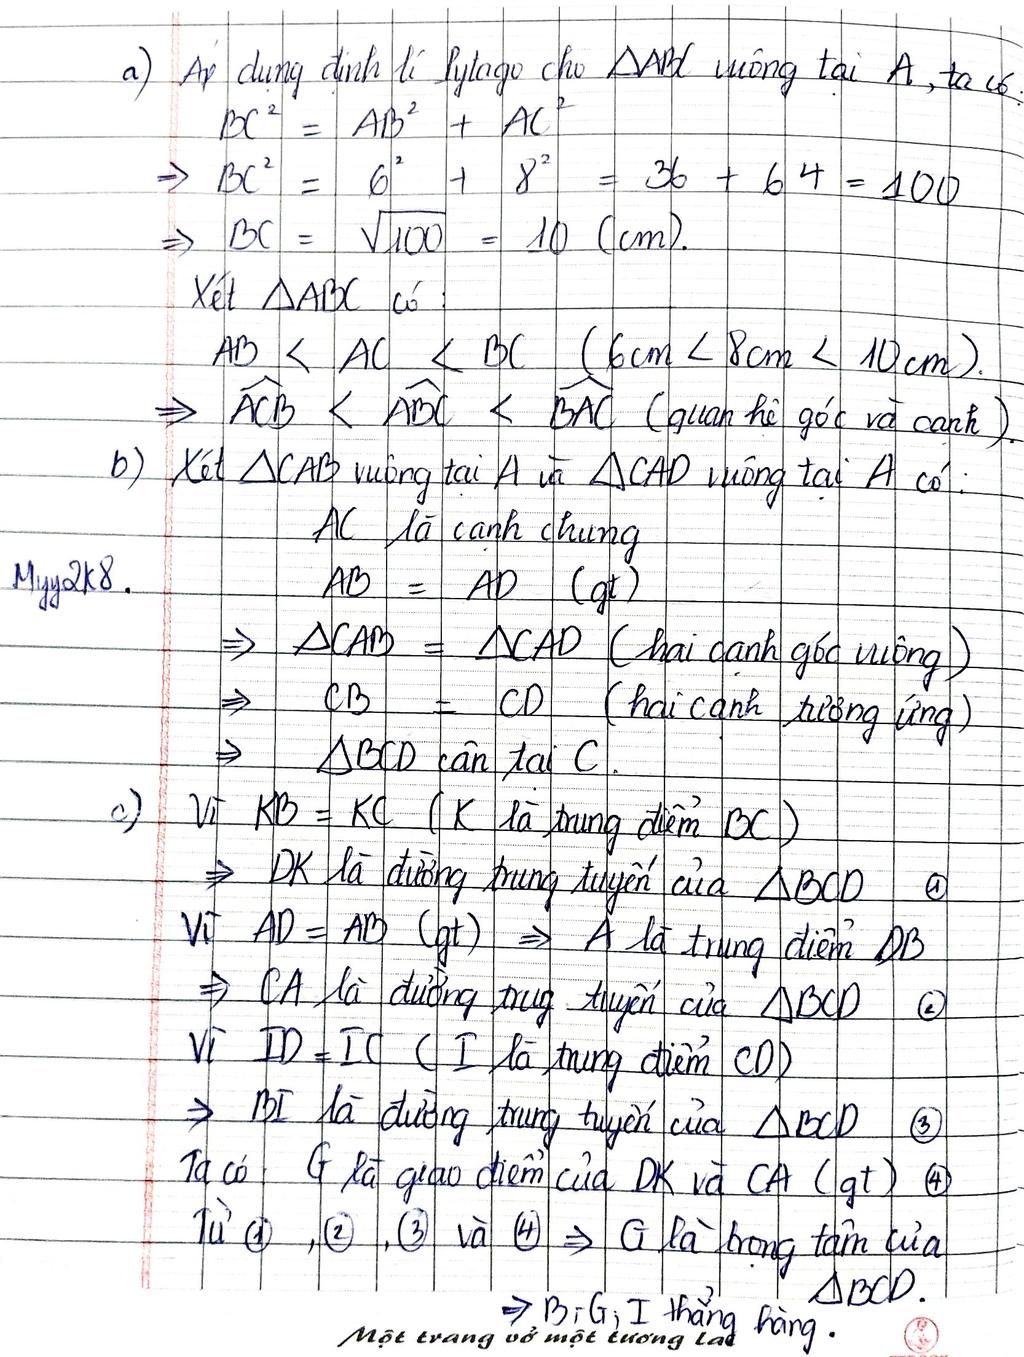 a) Áp dụng định lí Pytago cho ΔABC vuông tại A, ta có:
BC² = AB² + AC²
⇒ BC² = 6² + 8² = 36 + 64 = 100
⇒ BC = √100 = 10 (cm).
Xét ΔABC có:
AB < AC < BC (6cm < 8cm < 10cm).
⇒ \widehat{ACB} < \widehat{ABC} < \widehat{BAC} (quan hệ góc và cạnh).
b) Xét ΔCAB vuông tại A và ΔCAD vuông tại A có:
AC là cạnh chung
Myy2k8. AB = AD (gt)
⇒ ΔCAB = ΔCAD (hai cạnh góc vuông)
⇒ CB = CD (hai cạnh tương ứng)
⇒ ΔBCD cân tại C.
c) Vì KB = KC (K là trung điểm BC)
⇒ DK là đường trung tuyến của ΔBCD ①
Vì AD = AB (gt) ⇒ A là trung điểm DB
⇒ CA là đường trug tuyến của ΔBCD ②
Vì ID = IC (I là trung điểm CD)
⇒ BI là đường trung tuyến của ΔBCD ③
Ta có: G là giao điểm của DK và CA (gt) ④
Từ ①, ②, ③ và ④ ⇒ G là trọng tâm của
ΔBCD.
⇒ B; G; I thẳng hàng.
Một trang vở một tương lai